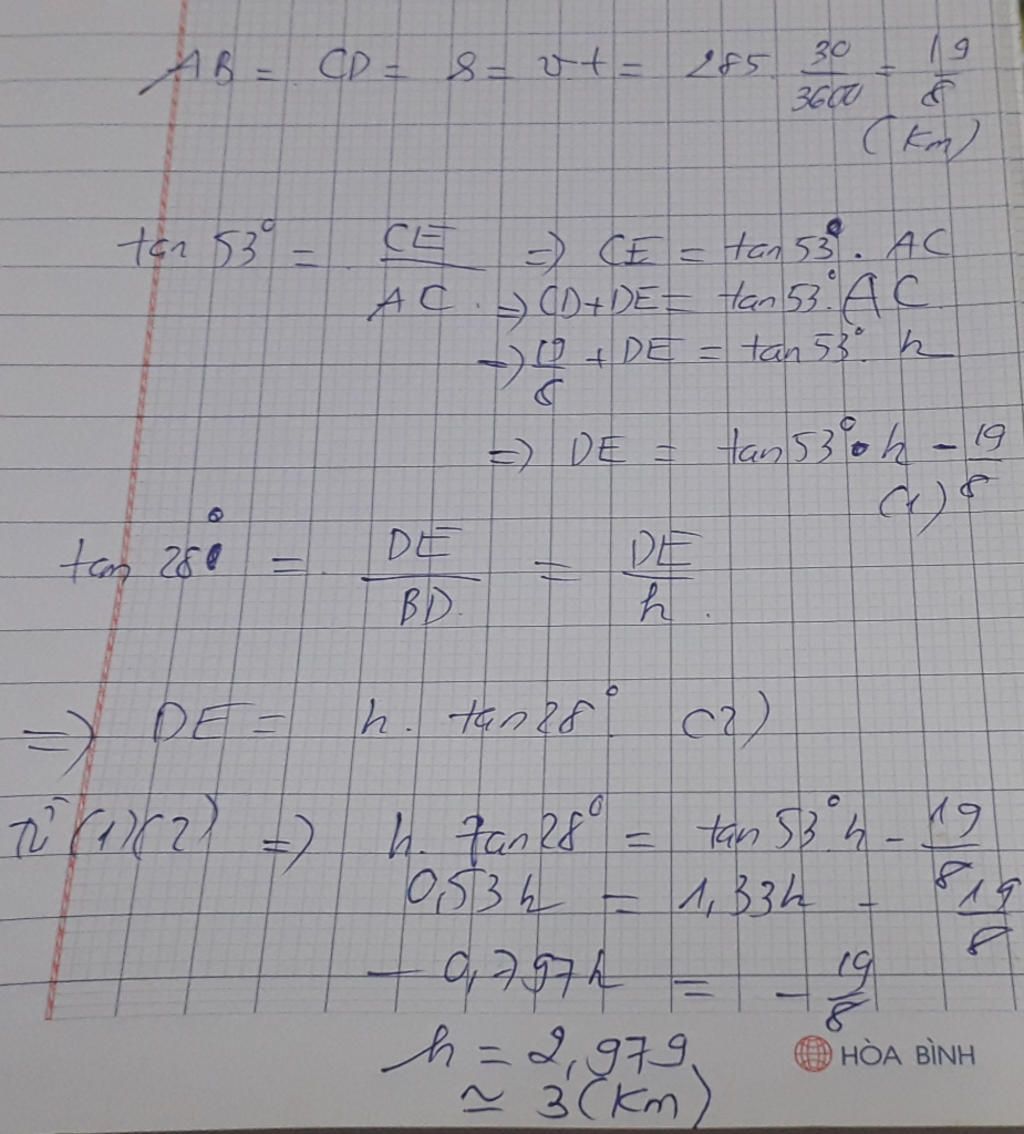 AB = CD = S = vt = 285. 30/3600 = 19/8
(Km)
tan 53° = CE/AC => CE = tan 53°. AC
=> CD + DE = tan 53°. AC
=> 19/8 + DE = tan 53°. h
=> DE = tan 53° . h - 19/8
(1)
tan 28° = DE/BD = DE/h.
=> DE = h. tan 28° (2)
Từ (1)(2) => h. tan 28° = tan 53°. h - 19/8
0,53h = 1,33h - 19/8
- 0,797h = - 19/8
h = 2,979
≃ 3 (Km)
HÒA BÌNH